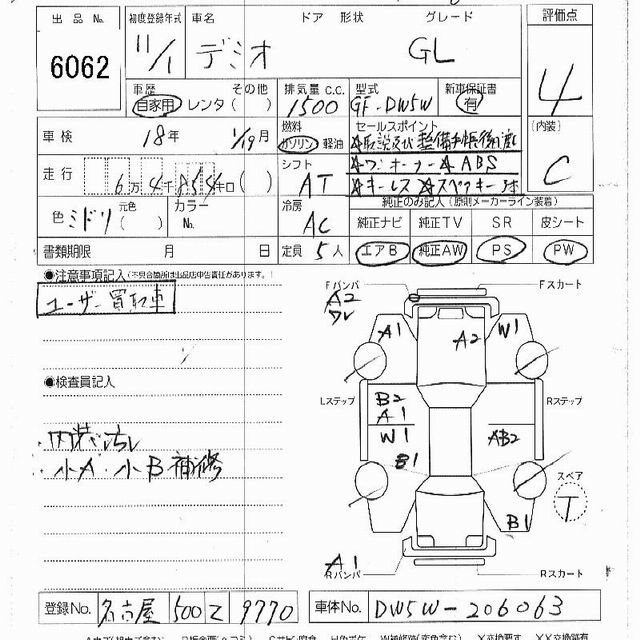 出品No. 初度登録年式 車名 ドア 形状 グレード 評価点
6062 11/1 デミオ GL 4
車歴 その他 排気量 C.C. 型式 新車保証書
自家用 レンタ ( ) 1500 GF-DW5W 有
車検 18年 1/19月 燃料 セールスポイント (内装)
ガソリン 軽油 取説及び整備手帳後渡
走行 6万 4千 854キロ ( ) シフト ワンオーナー ABS C
AT キーレス スペアキー1本
色 ミドリ 元色 ( ) カラーNo. 冷房 純正のみ記入 (原則メーカーライン装着)
AC 純正ナビ 純正TV SR 皮シート
書類期限 月 日 定員 5人 エアB 純正AW PS PW
●注意事項記入(不具合箇所は出品店申告責任があります。)
ユーザー買取車
●検査員記入
・内装汚れ
・小A・小B補修
Fバンパ Fスカート
A2
ワレ
A1 A2 W1
Lステップ Rステップ
B2
A1
W1 AB2
B1
スペア
T
B1
A1
Rバンパ Rスカート
登録No. 名古屋 500 Z 9770 車体No. DW5W-206063